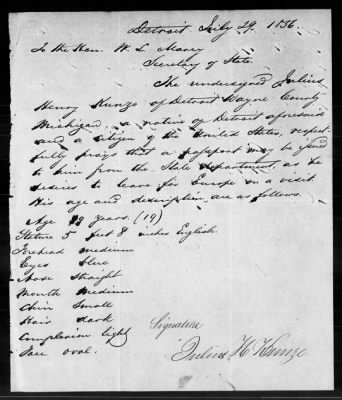 Detroit July 29. 1856.
To the Hon. W. L. Marcy
Secretary of State.
The undersigned Julius
Henry Kunze of Detroit Wayne County
Michigan, a native of Detroit aforesaid
and a citizen of the United States, respect-
fully prays that a passport may be issued
to him from the State department, as he
desires to leave for Europe on a visit
His age and description are as follows.
Age 19 years. (19)
Stature 5 feet 8 inches English.
Forehead medium
Eyes blue
Nose straight
Mouth medium
Chin small
Hair dark
Complexion light
Face oval.
Signature
Julius H Kunze